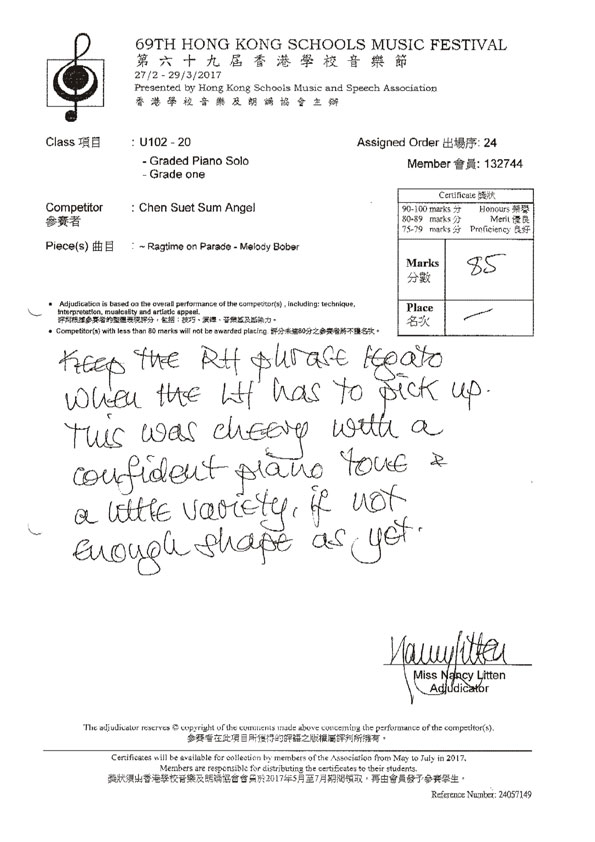 69TH HONG KONG SCHOOLS MUSIC FESTIVAL
第六十九屆香港學校音樂節
27/2 - 29/3/2017
Presented by Hong Kong Schools Music and Speech Association
香港學校音樂及朗誦協會主辦
Class 項目 : U102 - 20
Assigned Order 出場序: 24
- Graded Piano Solo
- Grade one
Member 會員: 132744
Competitor : Chen Suet Sum Angel
參賽者
Piece(s) 曲目 : ~ Ragtime on Parade - Melody Bober
Certificate 獎狀
90-100 marks 分 Honours 榮譽
80-89 marks 分 Merit 優良
75-79 marks 分 Proficiency 良好
Marks 85
分數
Place —
名次
● Adjudication is based on the overall performance of the competitor(s) , including: technique,
interpretation, musicality and artistic appeal.
評判根據參賽者的整體表現評分，包括：技巧、演繹、音樂感及感染力。
● Competitor(s) with less than 80 marks will not be awarded placing. 評分未達80分之參賽者將不獲名次。
Keep the RH phrase legato
when the LH has to pick up.
This was cheery with a
confident piano tone &
a little variety, if not
enough shape as yet.
Nancy Litten
Miss Nancy Litten
Adjudicator
The adjudicator reserves © copyright of the comments made above concerning the performance of the competitor(s).
參賽者在此項目所獲得的評語之版權屬評判所擁有。
Certificates will be available for collection by members of the Association from May to July in 2017.
Members are responsible for distributing the certificates to their students.
獎狀須由香港學校音樂及朗誦協會會員於2017年5月至7月期間領取，再由會員發予參賽學生。
Reference Number: 24057149